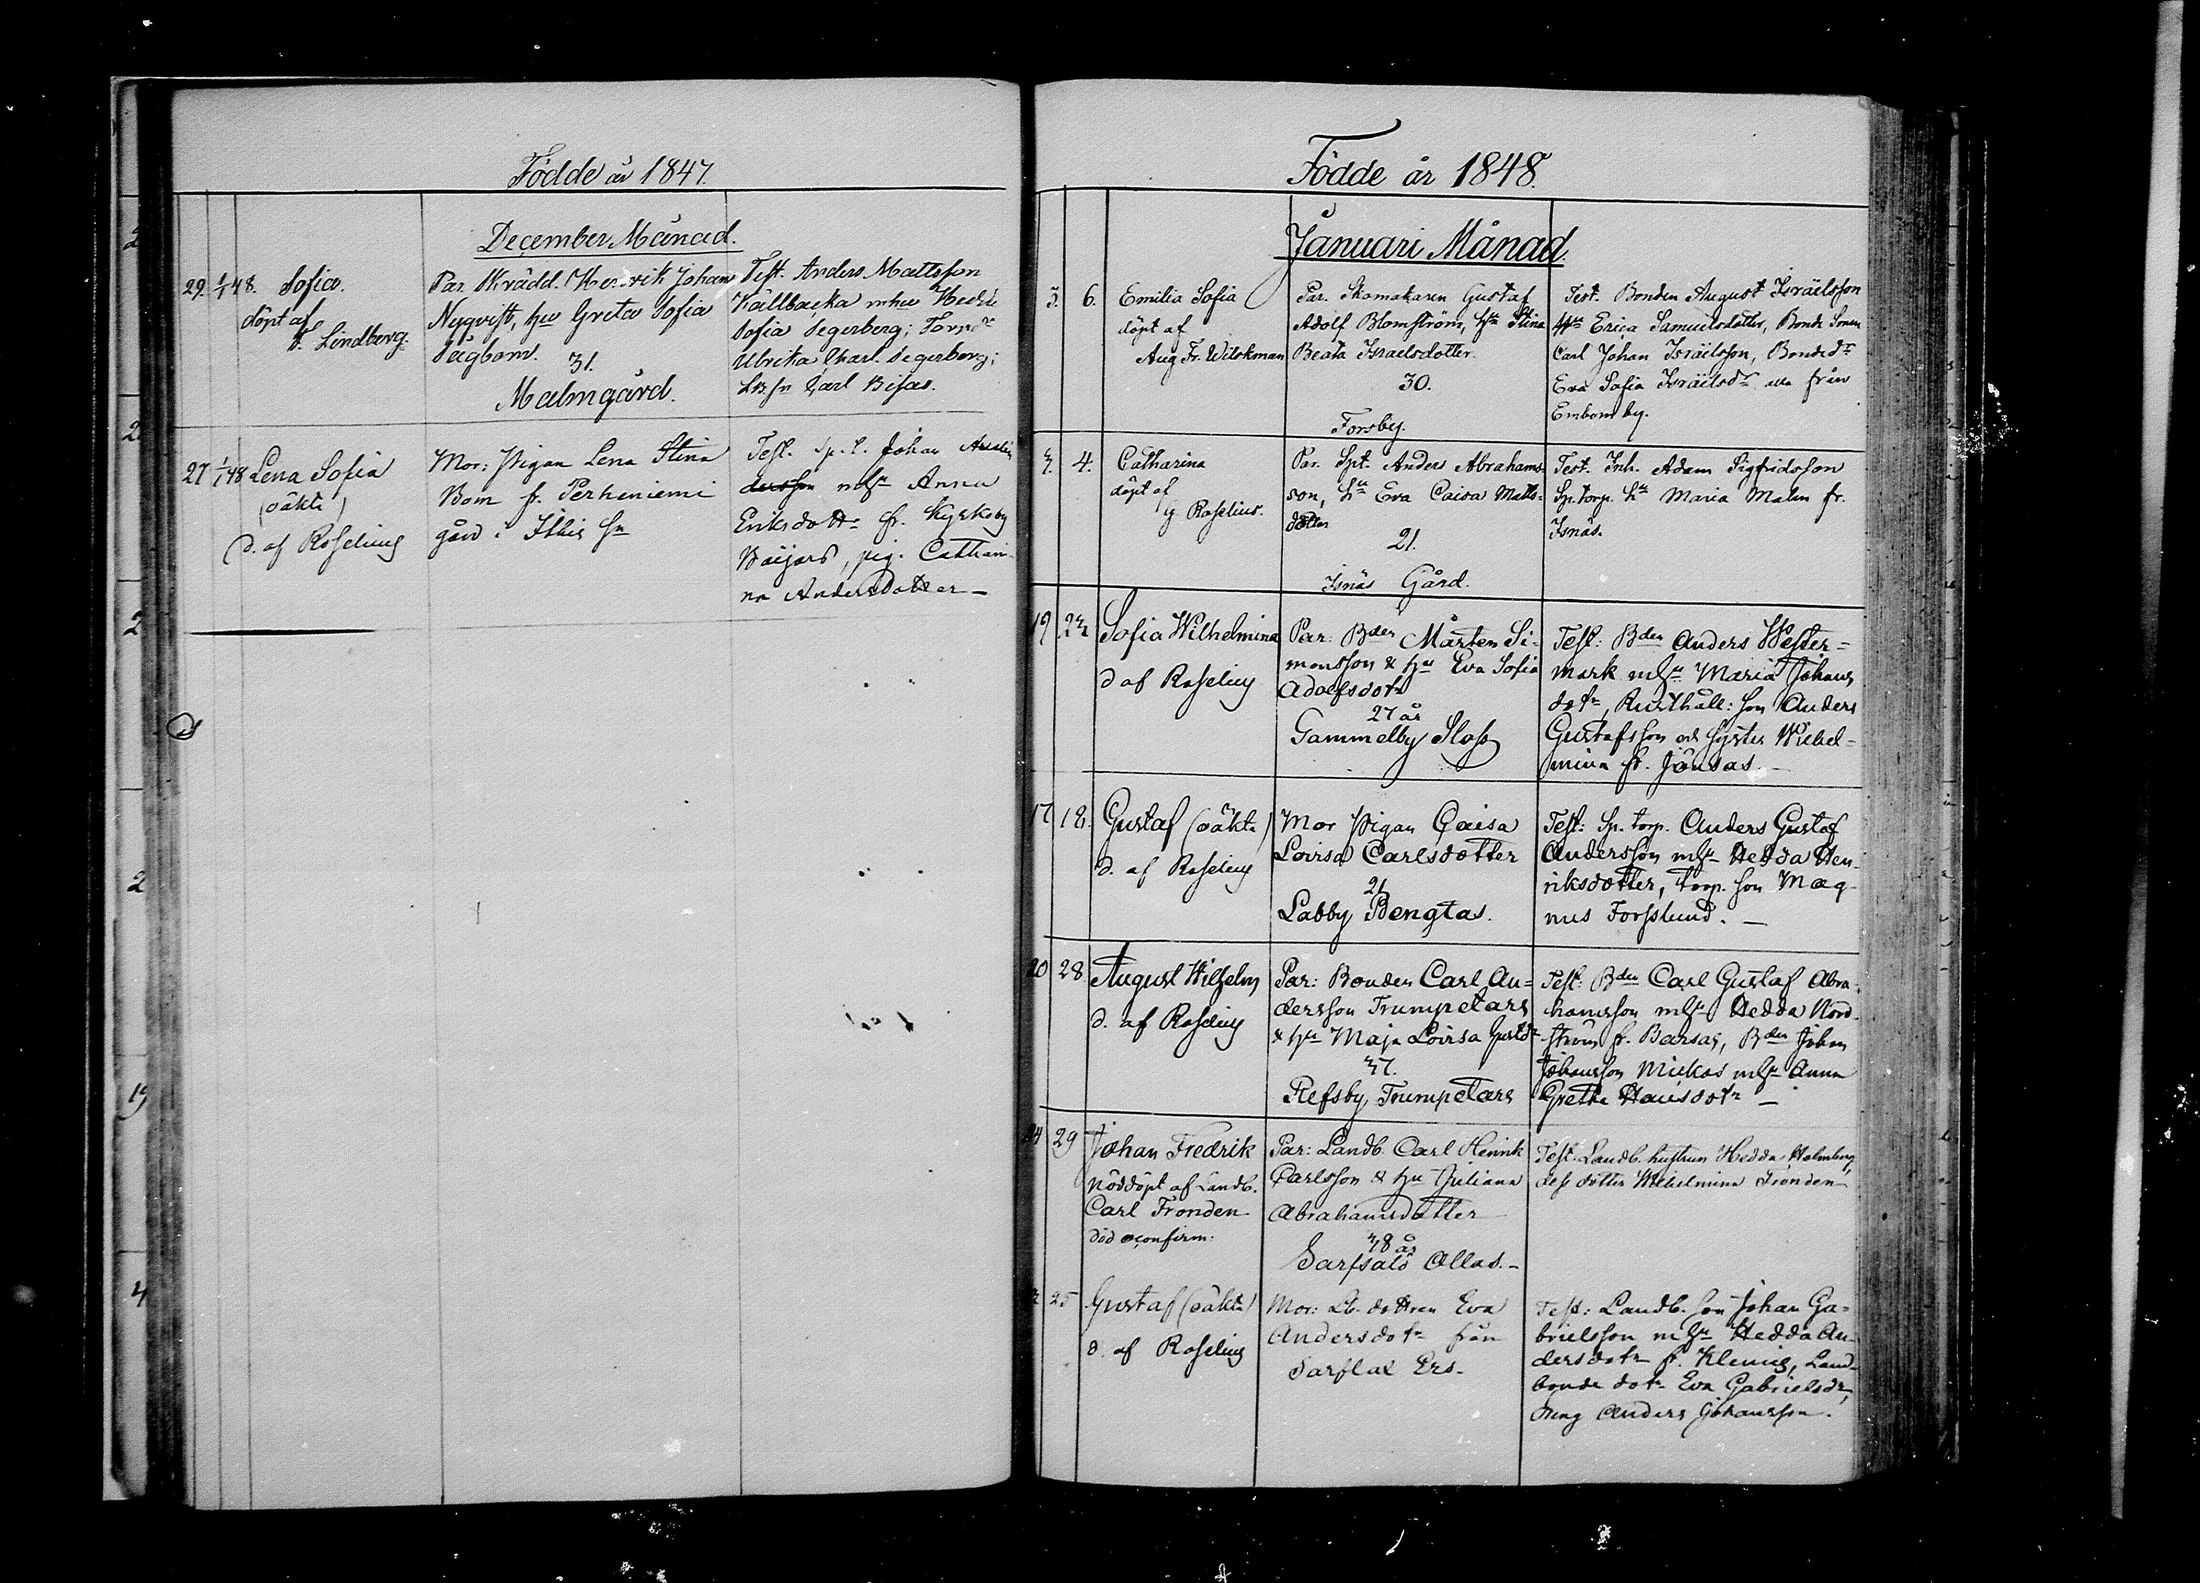 Födde år 1847.
December Månad.
29. 1/1 48. Sofia.
döpt af
Lindberg.
Par. Skrädd. Henrik Johan
Nyqvist, hu Greta Sofia
Sågbom.
31.
Malmgård.
Test. Anders Mattsson
Källbacka mhu Hedda
Sofia Segerberg; Torp
Ulrika Charl. Segerberg;
Carl Bisas.
27 1/1 48 Lena Sofia
(oäkta)
d. af Roselius
Mor: Pigan Lena Stina
Bom fr. Perheniemi
gård i Ithis sn
Test. Sp. t. Johan
dersson mhu Anna
Eriksdottr fr. Kyrkoby
Böijars, pig. Cathari-
na Andersdotter —
Födde år 1848.
Januari Månad.
3. 6. Emilia Sofia
döpt af
Aug. Fr. Wilskman
Par. Skomakaren Gustaf
Adolf Blomström, hu Stina
Beata Israelsdotter.
30.
Forsby.
Test. Bonden August Israëlsson
Hu Erica Samuelsdotter, Bonde Sonen
Carl Johan Israëlsson, Bonded:r
Eva Sofia Israëlsd:r alla från
Embom by.
3. 4. Catharina
döpt af
g Roselius.
Par. Spt. Anders Abrahams-
son, hu Eva Caisa Matts-
dotter
21.
Isnäs Gård.
Test. Inh. Adam Sigfridsson
Sp. torp. hu Maria Malm fr.
Isnäs.
19 23 Sofia Wilhelmina
d af Roselius
Par: Bden Mårten Si-
monsson & hu Eva Sofia
Adolfsdotr
27 år
Gammelby Slås
Test: Bden Anders Wester=
mark mhu Maria Johans
dotr, Rusthåll: son Anders
Gustafsson och syster Wilhel=
mina fr. Jönsas. —
17 18. Gustaf (oäkta)
d. af Roselius
Mor Pigan Caisa
Lovisa Carlsdotter
21
Labby Bengtas.
Test: Sp. torp. Anders Gustaf
Andersson mhu Hedda Hen
riksdotter, torp. son Mag-
nus Forsslund. —
20 28 August Wilhelm
d. af Roselius
Par: Bonden Carl An=
dersson Trumpetars
& hu Maja Lovisa Gustdr
37.
Refsby, Trumpetars
Test: Bden Carl Gustaf Abra-
hamsson mhu Hedda Nord-
ström fr. Barsas, Bden Johan
Johansson Mickas mhu Anna
Gretha Hansdotr —
24 29 Johan Fredrik
nöddöpt af Landb.
Carl Fronden
död oconfirm:
Par: Landb. Carl Henrik
Carlsson & hu Juliana
Abrahamsdotter
38 år
Sarfsalö Ollas. —
Test: Landb. hustrun Hedda Holmberg,
dess dotter Wilhelmina Fronden
25 Gustaf (oäkta)
d. af Roselius
Mor: Lb. dottren Eva
Andersdotr från
Sarflax Ers.
Test: Landb. son Johan Ga=
brielsson mhu Hedda An-
dersdotr fr. Klemis, Land-
bonde dotr Eva Gabrielsdr,
dreng Anders Johansson.